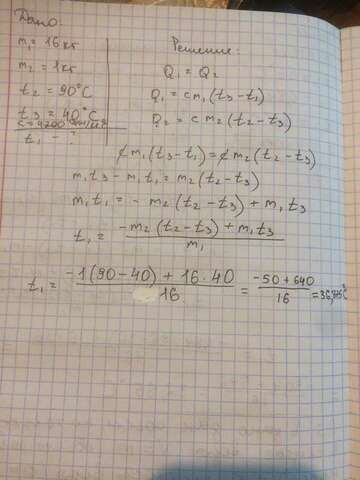 Дано:
m₁ = 16 кг
m₂ = 1 кг
t₂ = 90°C
t₃ = 40°C
c = 4200
t₁ - ?
Решение:
Q₁ = Q₂
Q₁ = cm₁(t₃ - t₁)
Q₂ = cm₂(t₂ - t₃)
cm₁(t₃ - t₁) = cm₂(t₂ - t₃)
m₁t₃ - m₁t₁ = m₂(t₂ - t₃)
m₁t₁ = -m₂(t₂ - t₃) + m₁t₃
t₁ = (-m₂(t₂ - t₃) + m₁t₃) / m₁
t₁ = (-1(90 - 40) + 16 · 40) / 16 = (-50 + 640) / 16 = 36,875°C